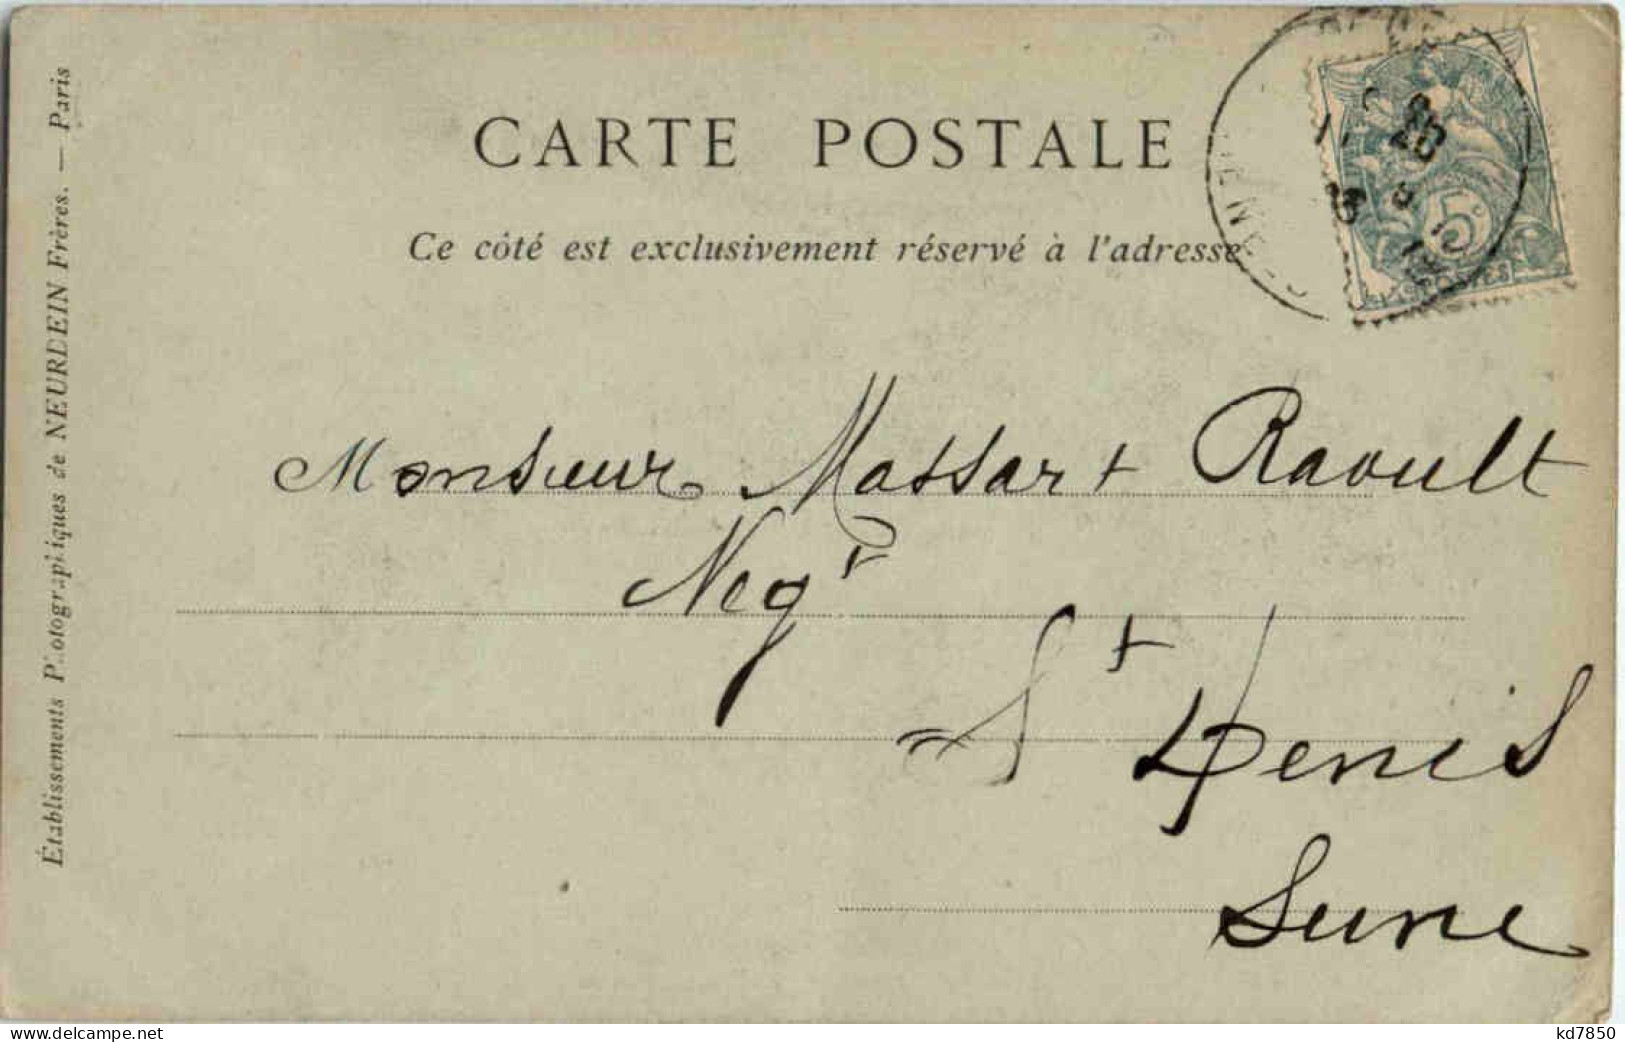 CARTE POSTALE
Ce côté est exclusivement réservé à l'adresse
Établissements Photographiques de NEURDEIN Frères. — Paris
5c
POSTES
Monsieur Massart Raoult
Negt
St Denis
Seine
kd7850